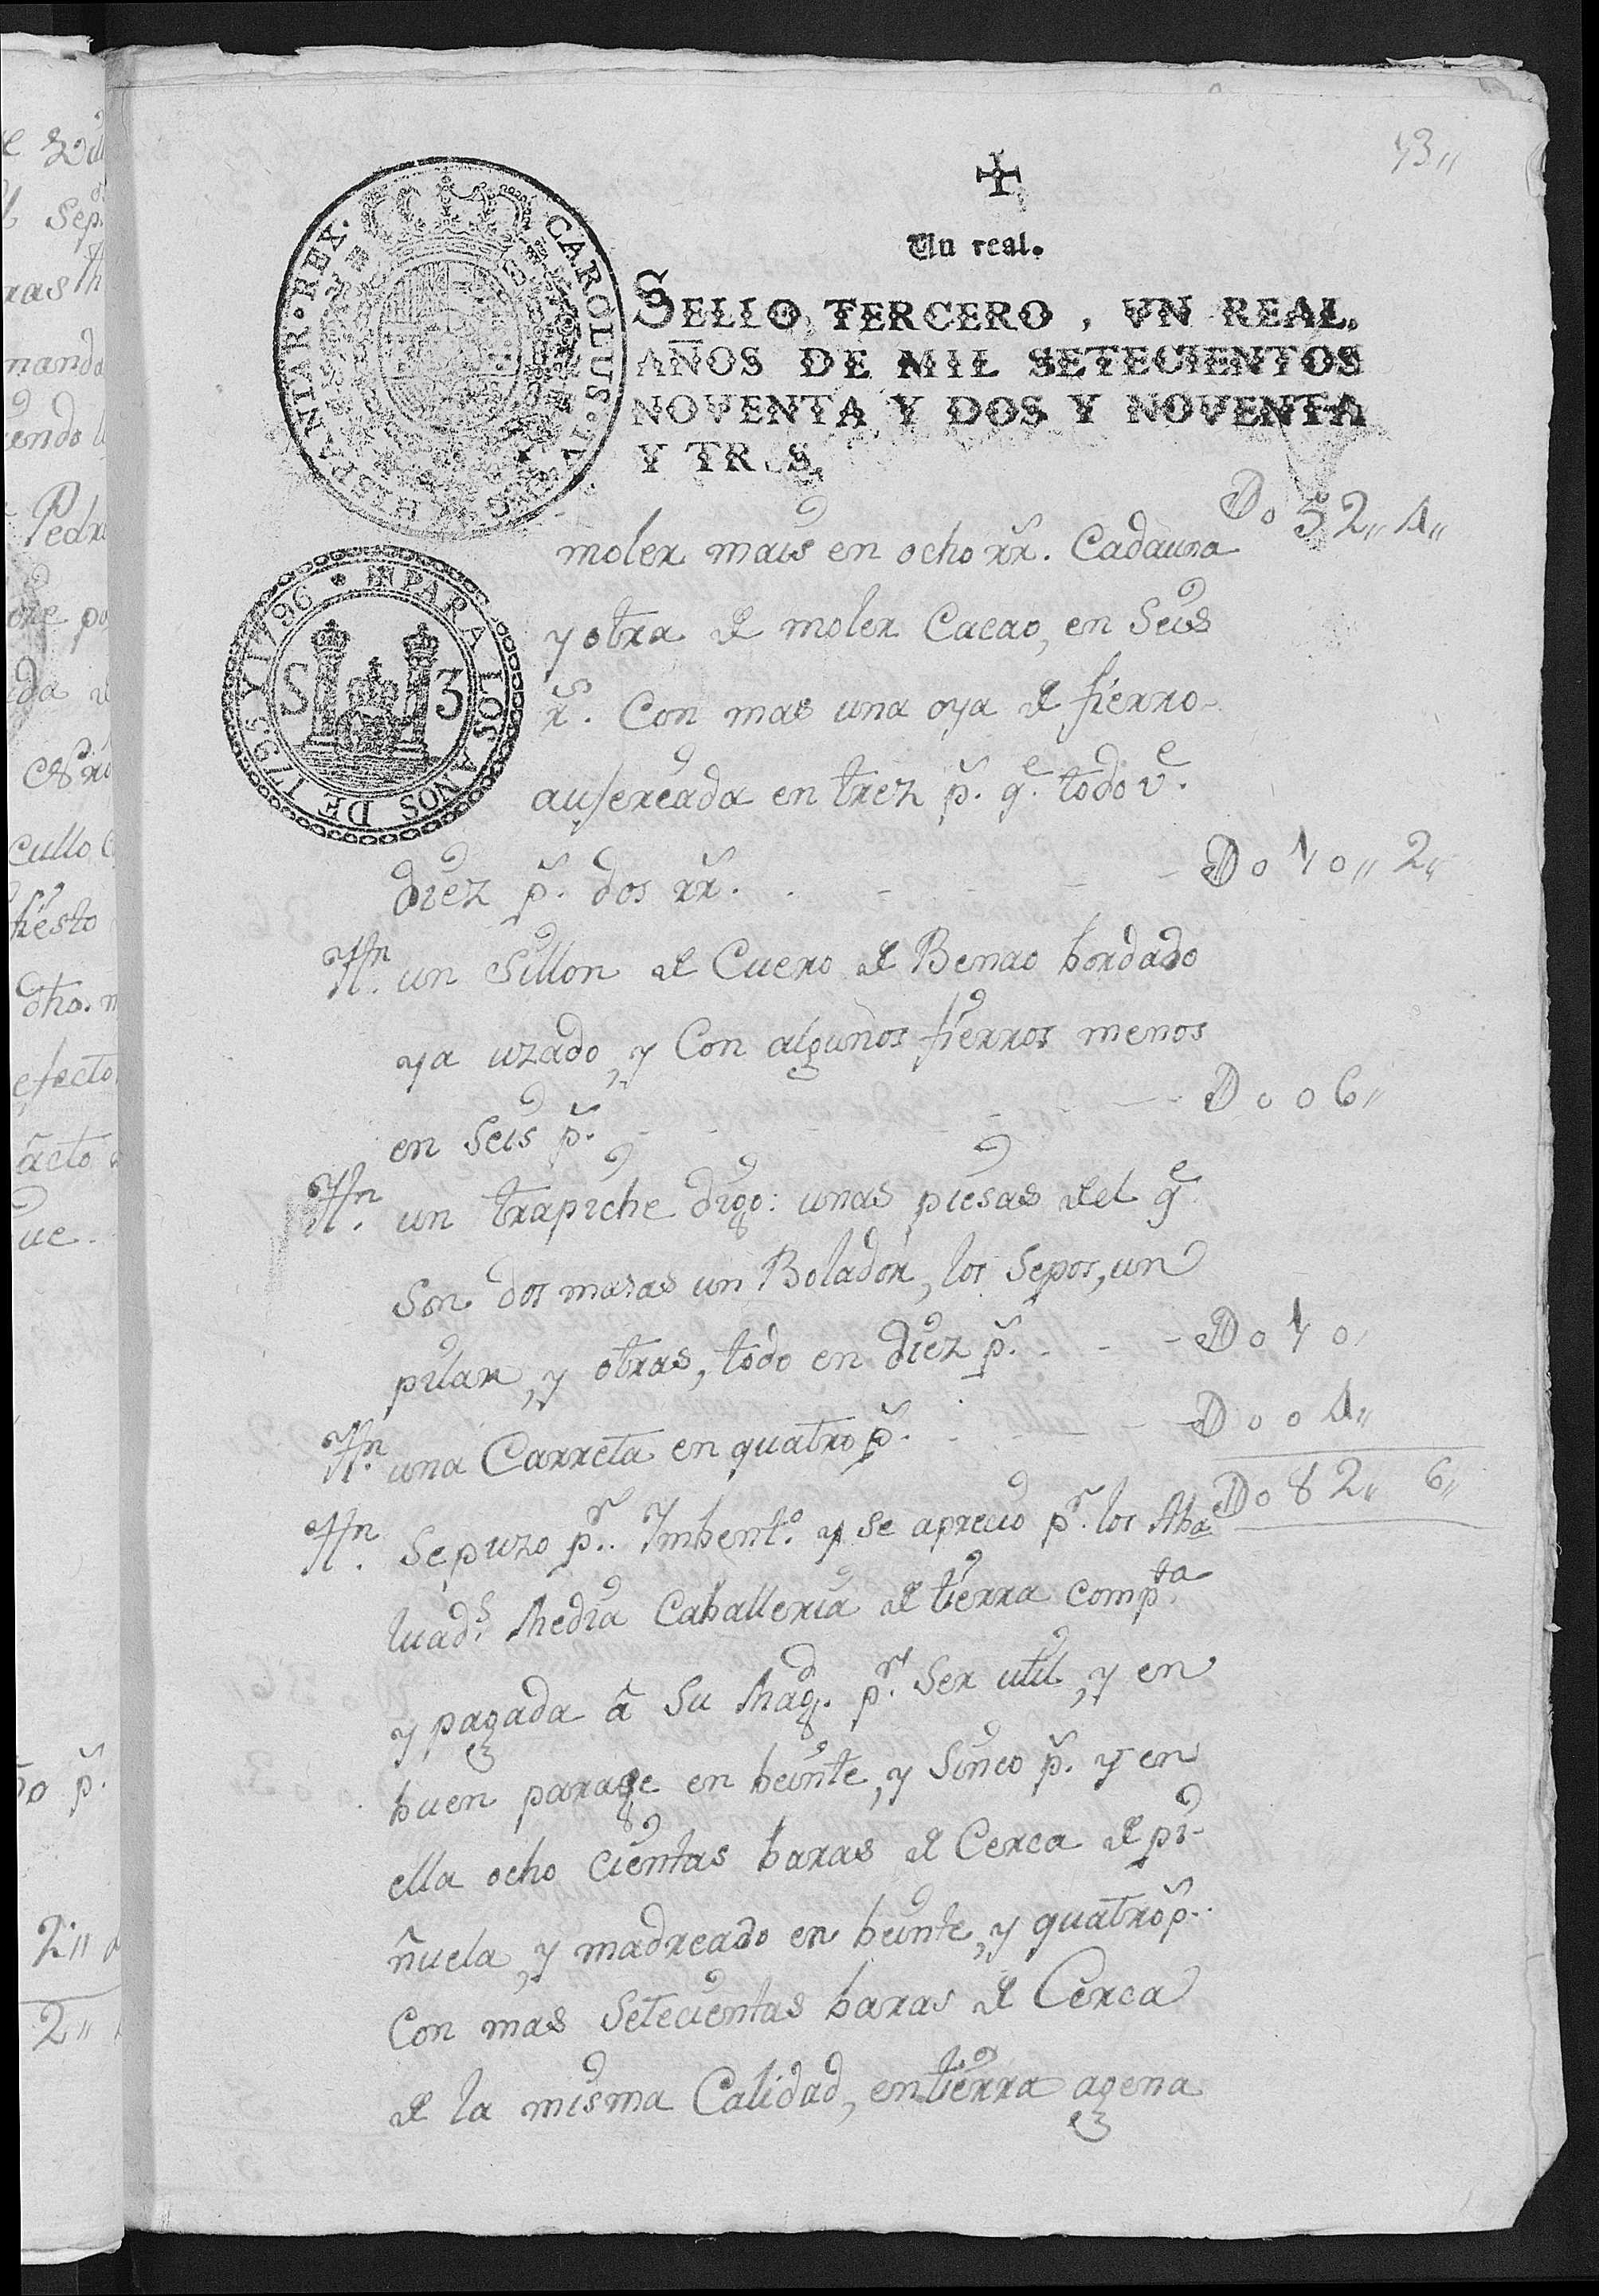 13,,
Un real.
SELLO TERCERO, VN REAL.
AÑOS DE MIL SETECIENTOS
NOVENTA Y DOS Y NOVENTA
Y TR S.
CAROLUS·IV·
HISPANIAR·REX·
PARA LOS AÑOS DE 1795 Y 1796
S 3
Do 52,, 4,,
moler mais en ocho rr̃. Cadauna
y otra de moler Cacao, en Seis
rr̃. Con mas una oya de fierro
aufereada en trez p̃. q.e todo v.e
diez p̃. dos rr̃. - - - - Do 10,, 2,,
Ytn. un Sillon de Cuero de Benao bordado
ya uzado, y Con algunos fierros menos
en Seis p̃. - - - - Do 06,,
Ytn. un trapiche digo: unas piesas del q.e
Son dos masas un Bolador, los Sepos, un
pilar, y otras, todo en diez p̃. - - - Do 10,
Ytn. una Carreta en quatro p̃. - - - Do 04,,
Do 82,, 6,,
Ytn. Sepuzo p.r Imbent.o y se aprecio p.r los Aba
luad.s Media Caballeria de tierra comp.ta
y pagada â Su Mag.d p.r Ser util, y en
buen parage en beinte, y Sinco p̃. y en
ella ocho cientas baras de Cerca de pi-
ñuela, y madreado en beinte, y quatro p̃.
Con mas Setecientas baras de Cerca
de la misma Calidad, en tierra agena